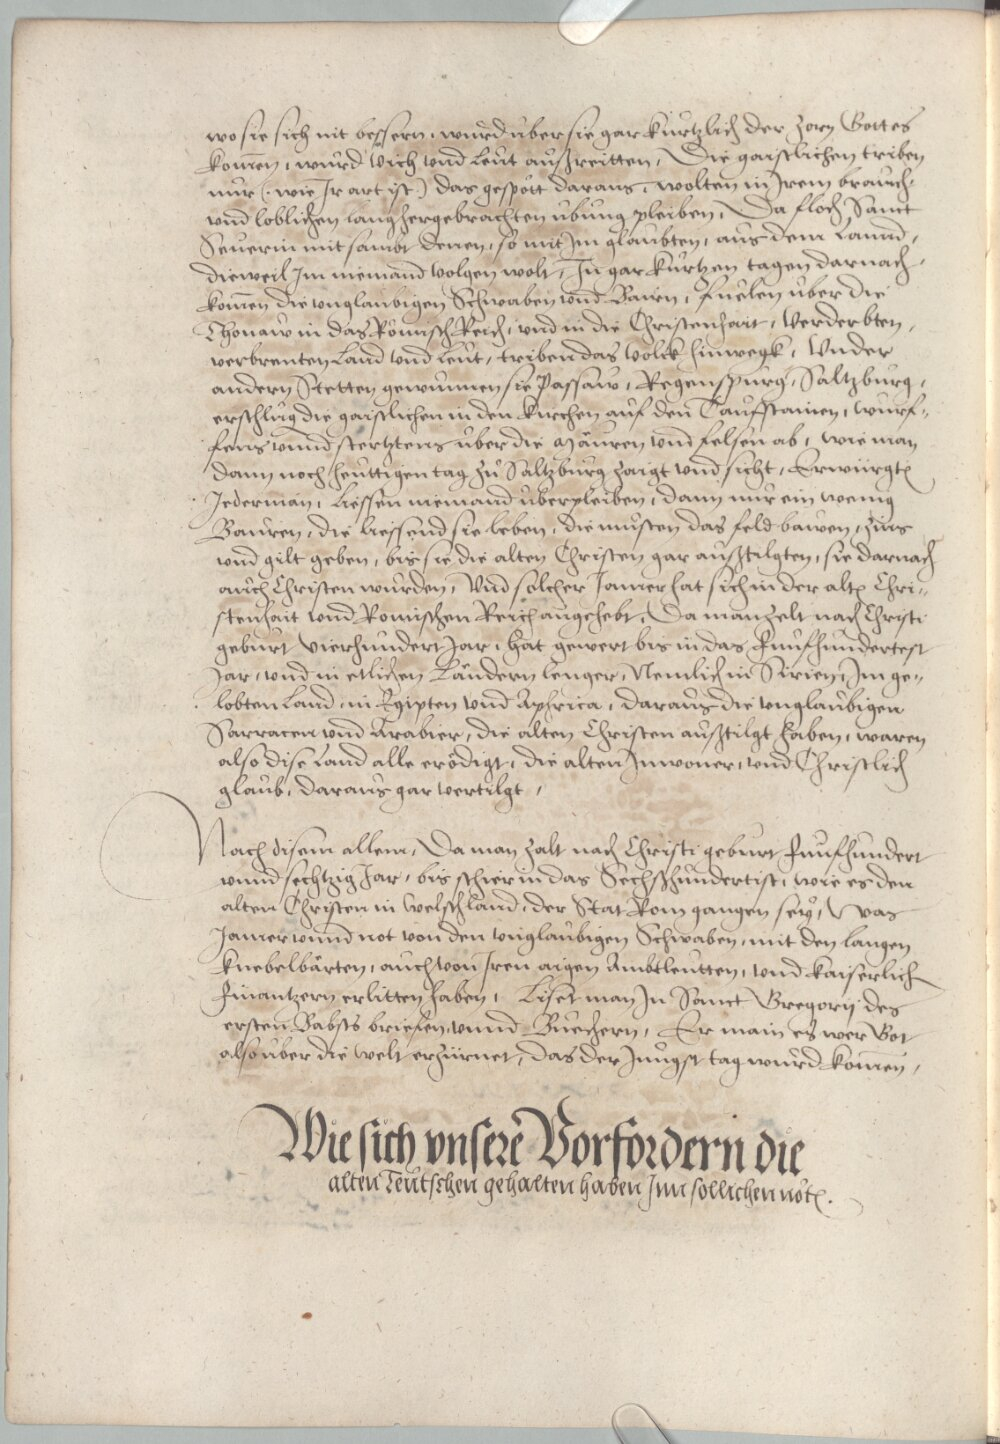 wo sie sich nit bessern, wurd uber sie gar kurtzlich der zorn Gottes
komen, wurd Vich vnd Leut außreitten, Die gaistlichen triben
nur (: wie Jr art ist) das gespött daraus, wolten in Jrem brauch
vnd loblichen lang hergebrachten ubung pleiben, Da floch Sanct
Seuerin mit sambt denen, so mit Jm glaubten, aus dem Lannd,
dieweil Jm niemand volgen wolt, Jn gar kurtzen tagen darnach,
komen die vnglaubigen Schwaben vnd Bairn, fuelen uber die
Thonaw in das Römisch Reich, vnd in die Christenhait, Verderbten,
verbrenten Land vnd Leut, triben das volck hinwegk, Vnder
andern Stetten gewunnen sie Passaw, Regenspurg, Saltzburg,
erschlug die gaistlichen in den kirchen auf den Taufstainen, wurf-
fens vnnd stertztens uber die Mäuren vnd felsen ab, wie man
dann noch heuttigen tag zu Saltzburg zaigt vnd sicht, Erwürgtn
Jederman, Liessen niemand uberpleiben, dann nur ein wenig
Bauren, die liessend sie leben, die musten das feld bawen, zins
vnd gilt geben, bis sie die alten Christen gar außtilgten, sie darnach
auch Christen wurden, Vnd solcher Jamer hat sich in der altn Chri-
stenhait vnd Romischen Reich angehebt, Da man zelt nach Christi
geburt Vierhundert Jar, hat gewert bis in das Funfhundertest
Jar, vnd in etlichen Ländern lenger, Nemlich in Sirien, Jm ge-
lobten Land, in Egipten vnd Aphrica, daraus die vnglaubigen
Sarracen vnd Arabier, die alten Christen außtilgt haben, waren
also dise Land alle erödigt, die alten Jnwoner, vnd Christlich
glaub, daraus gar vertilgt,
Nach disem allem, Da man zalt nach Christi geburt Funfhundert
vnnd sechtzig Jar, bis schier in das Sechßhundertist, wie es den
alten Christen in Welschland, der Stat Rom gangen sey, Was
Jamer vnnd not von den vnglaubigen Schwaben, mit den langen
knebelbärten, auch von Jren aigen Ambtleutten, vnd kaiserlich
Finantzern erlitten haben, Liset man Jn Sanct Gregorij des
ersten Babsts briefen vnnd Buechern, Er main es wer Got
also uber die welt erzürnet, das der Jungst tag wurd komen,
Wie sich vnsere Vorfordern die
alten Teutschen gehalten haben Jnn sollichen nötn.